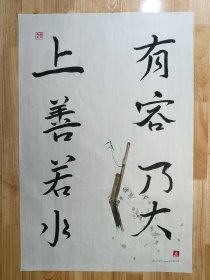 有容乃大
上善若水